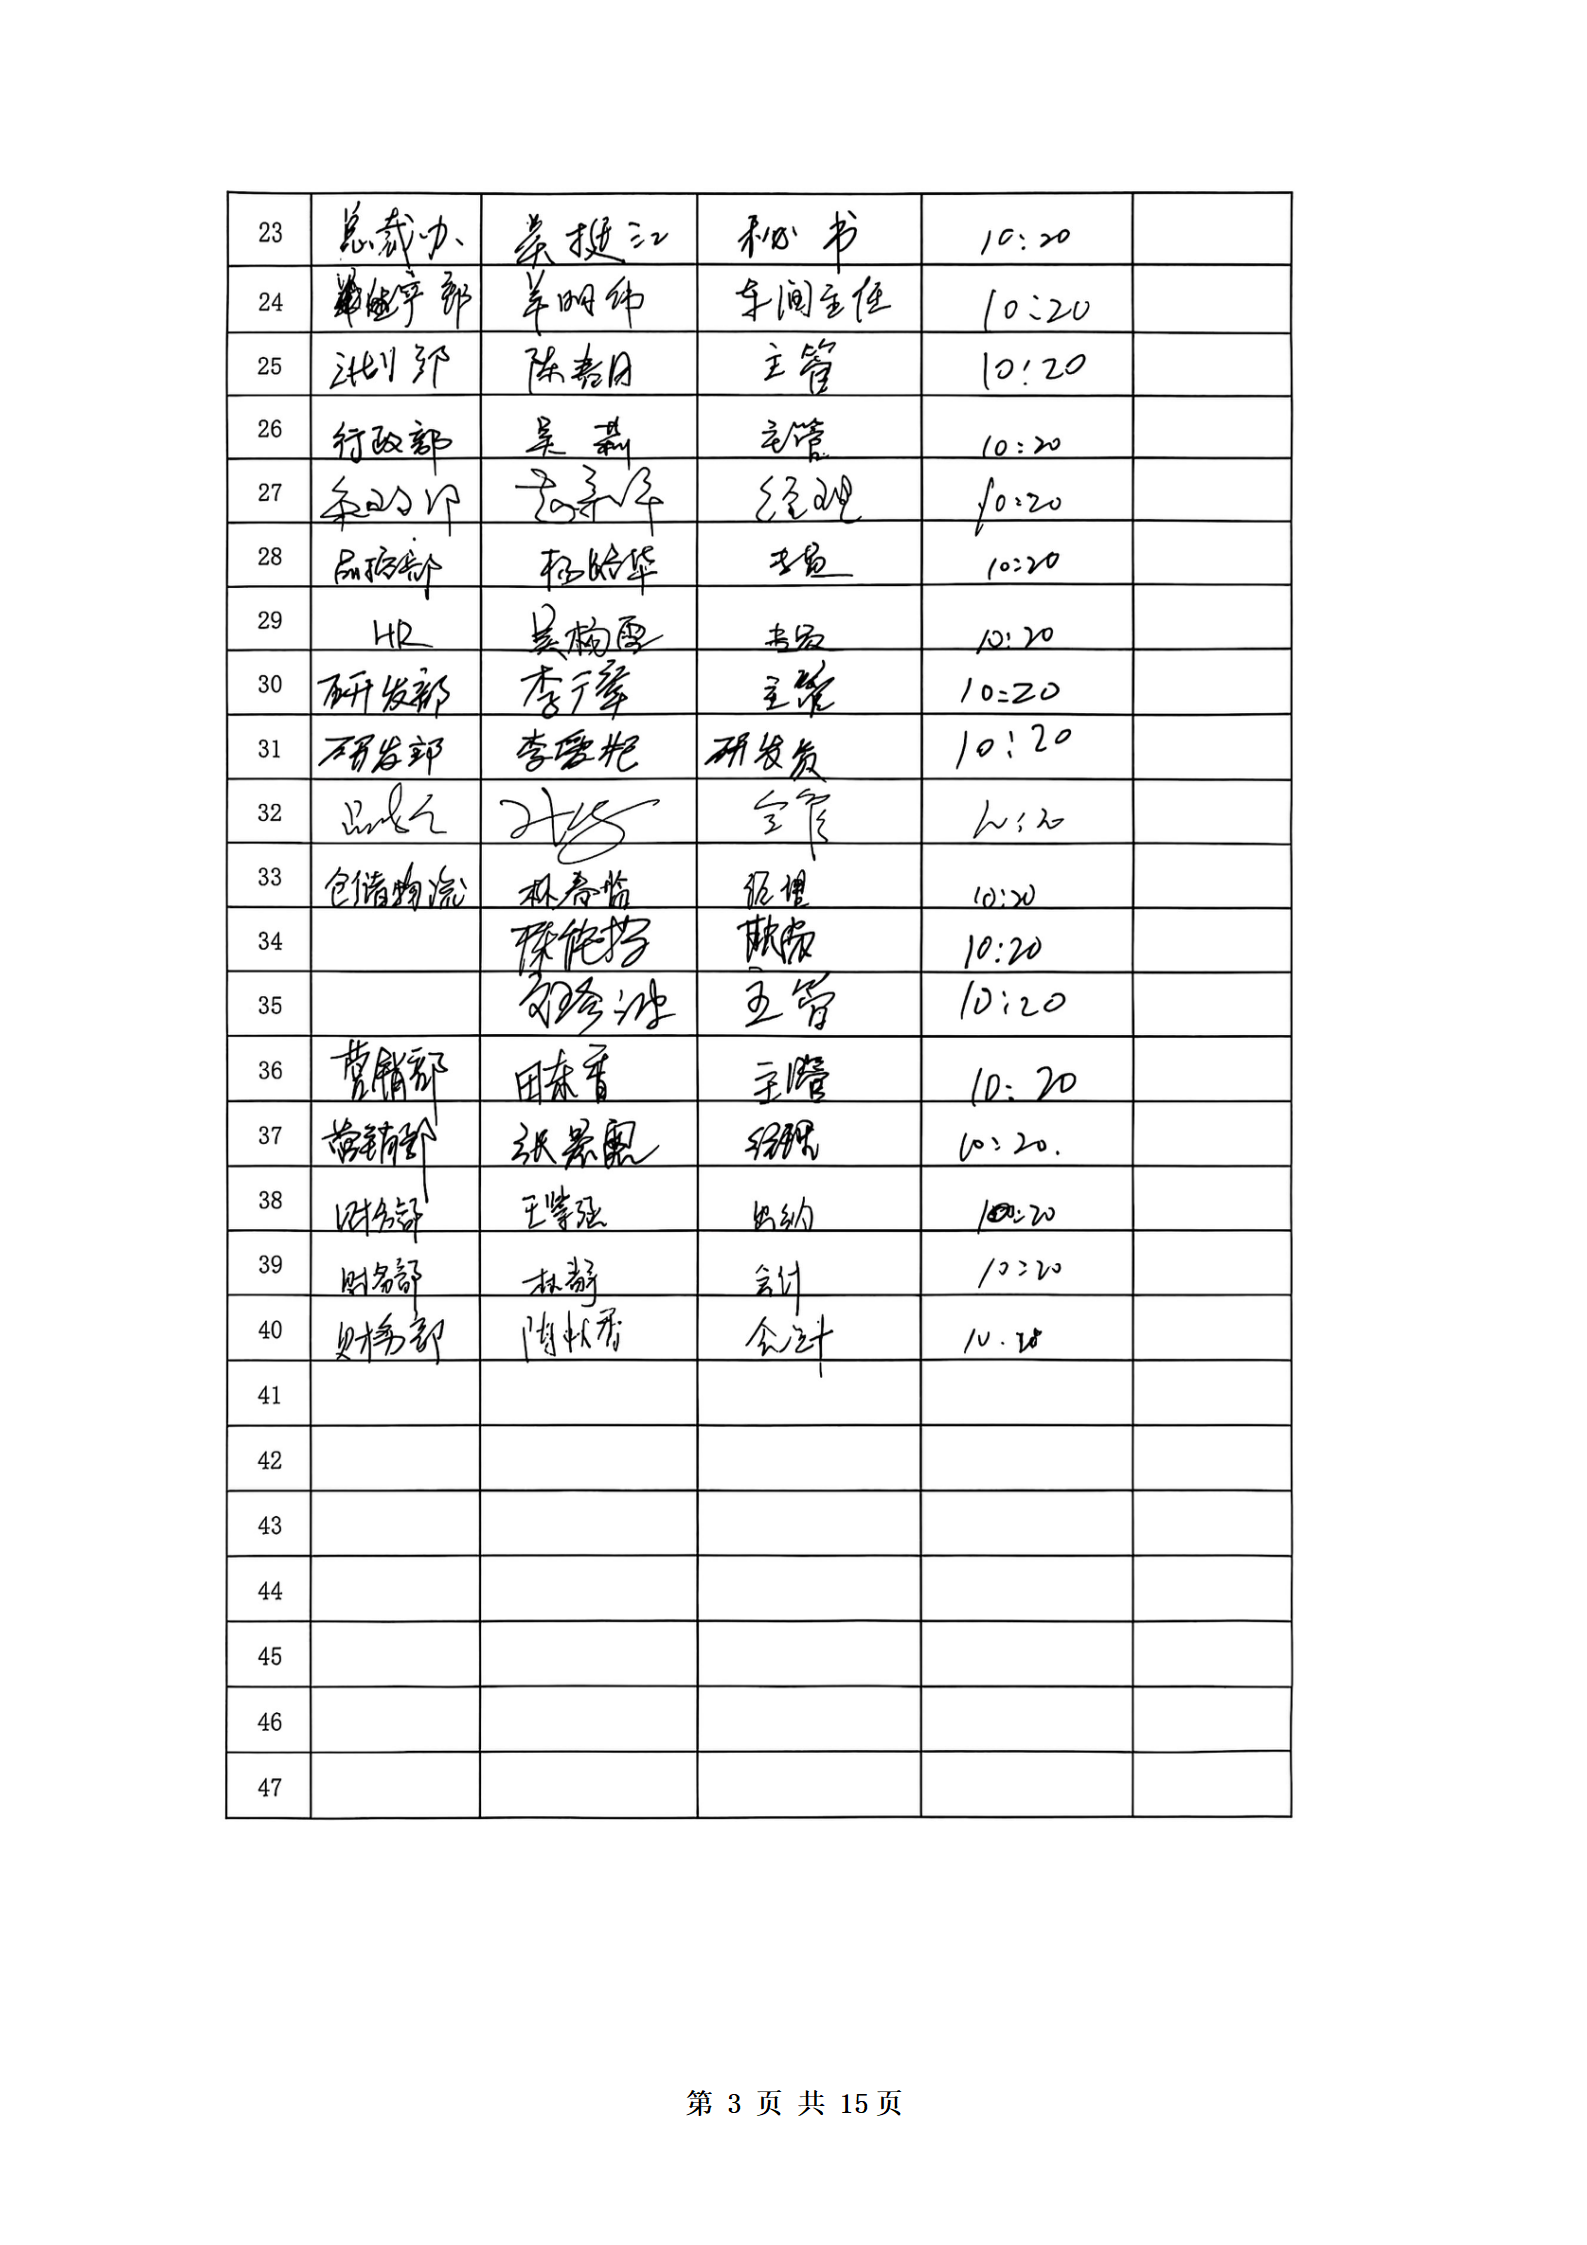 23 总裁办 吴挺江 秘书 10:20
24 生产部 羊明伟 车间主任 10:20
25 计划部 陈春月 主管 10:20
26 行政部 吴莉 主管 10:20
27 经理 10:20
28 品控部 杨皓华 专员 10:20
29 HR 吴杨雪 专员 10:20
30 研发部 李于翠 主管 10:20
31 研发部 李爱艳 研发员 10:20
32
33 仓储物流 林春监 经理 10:20
34 10:20
35 主管 10:20
36 营销部 田东香 主管 10:20
37 营销部 经理 10:20.
38 财务部 出纳 10:20
39 财务部 林静 会计 10:20
40 财务部 陈秋香 会计 10.20
41
42
43
44
45
46
47
第 3 页 共 15页